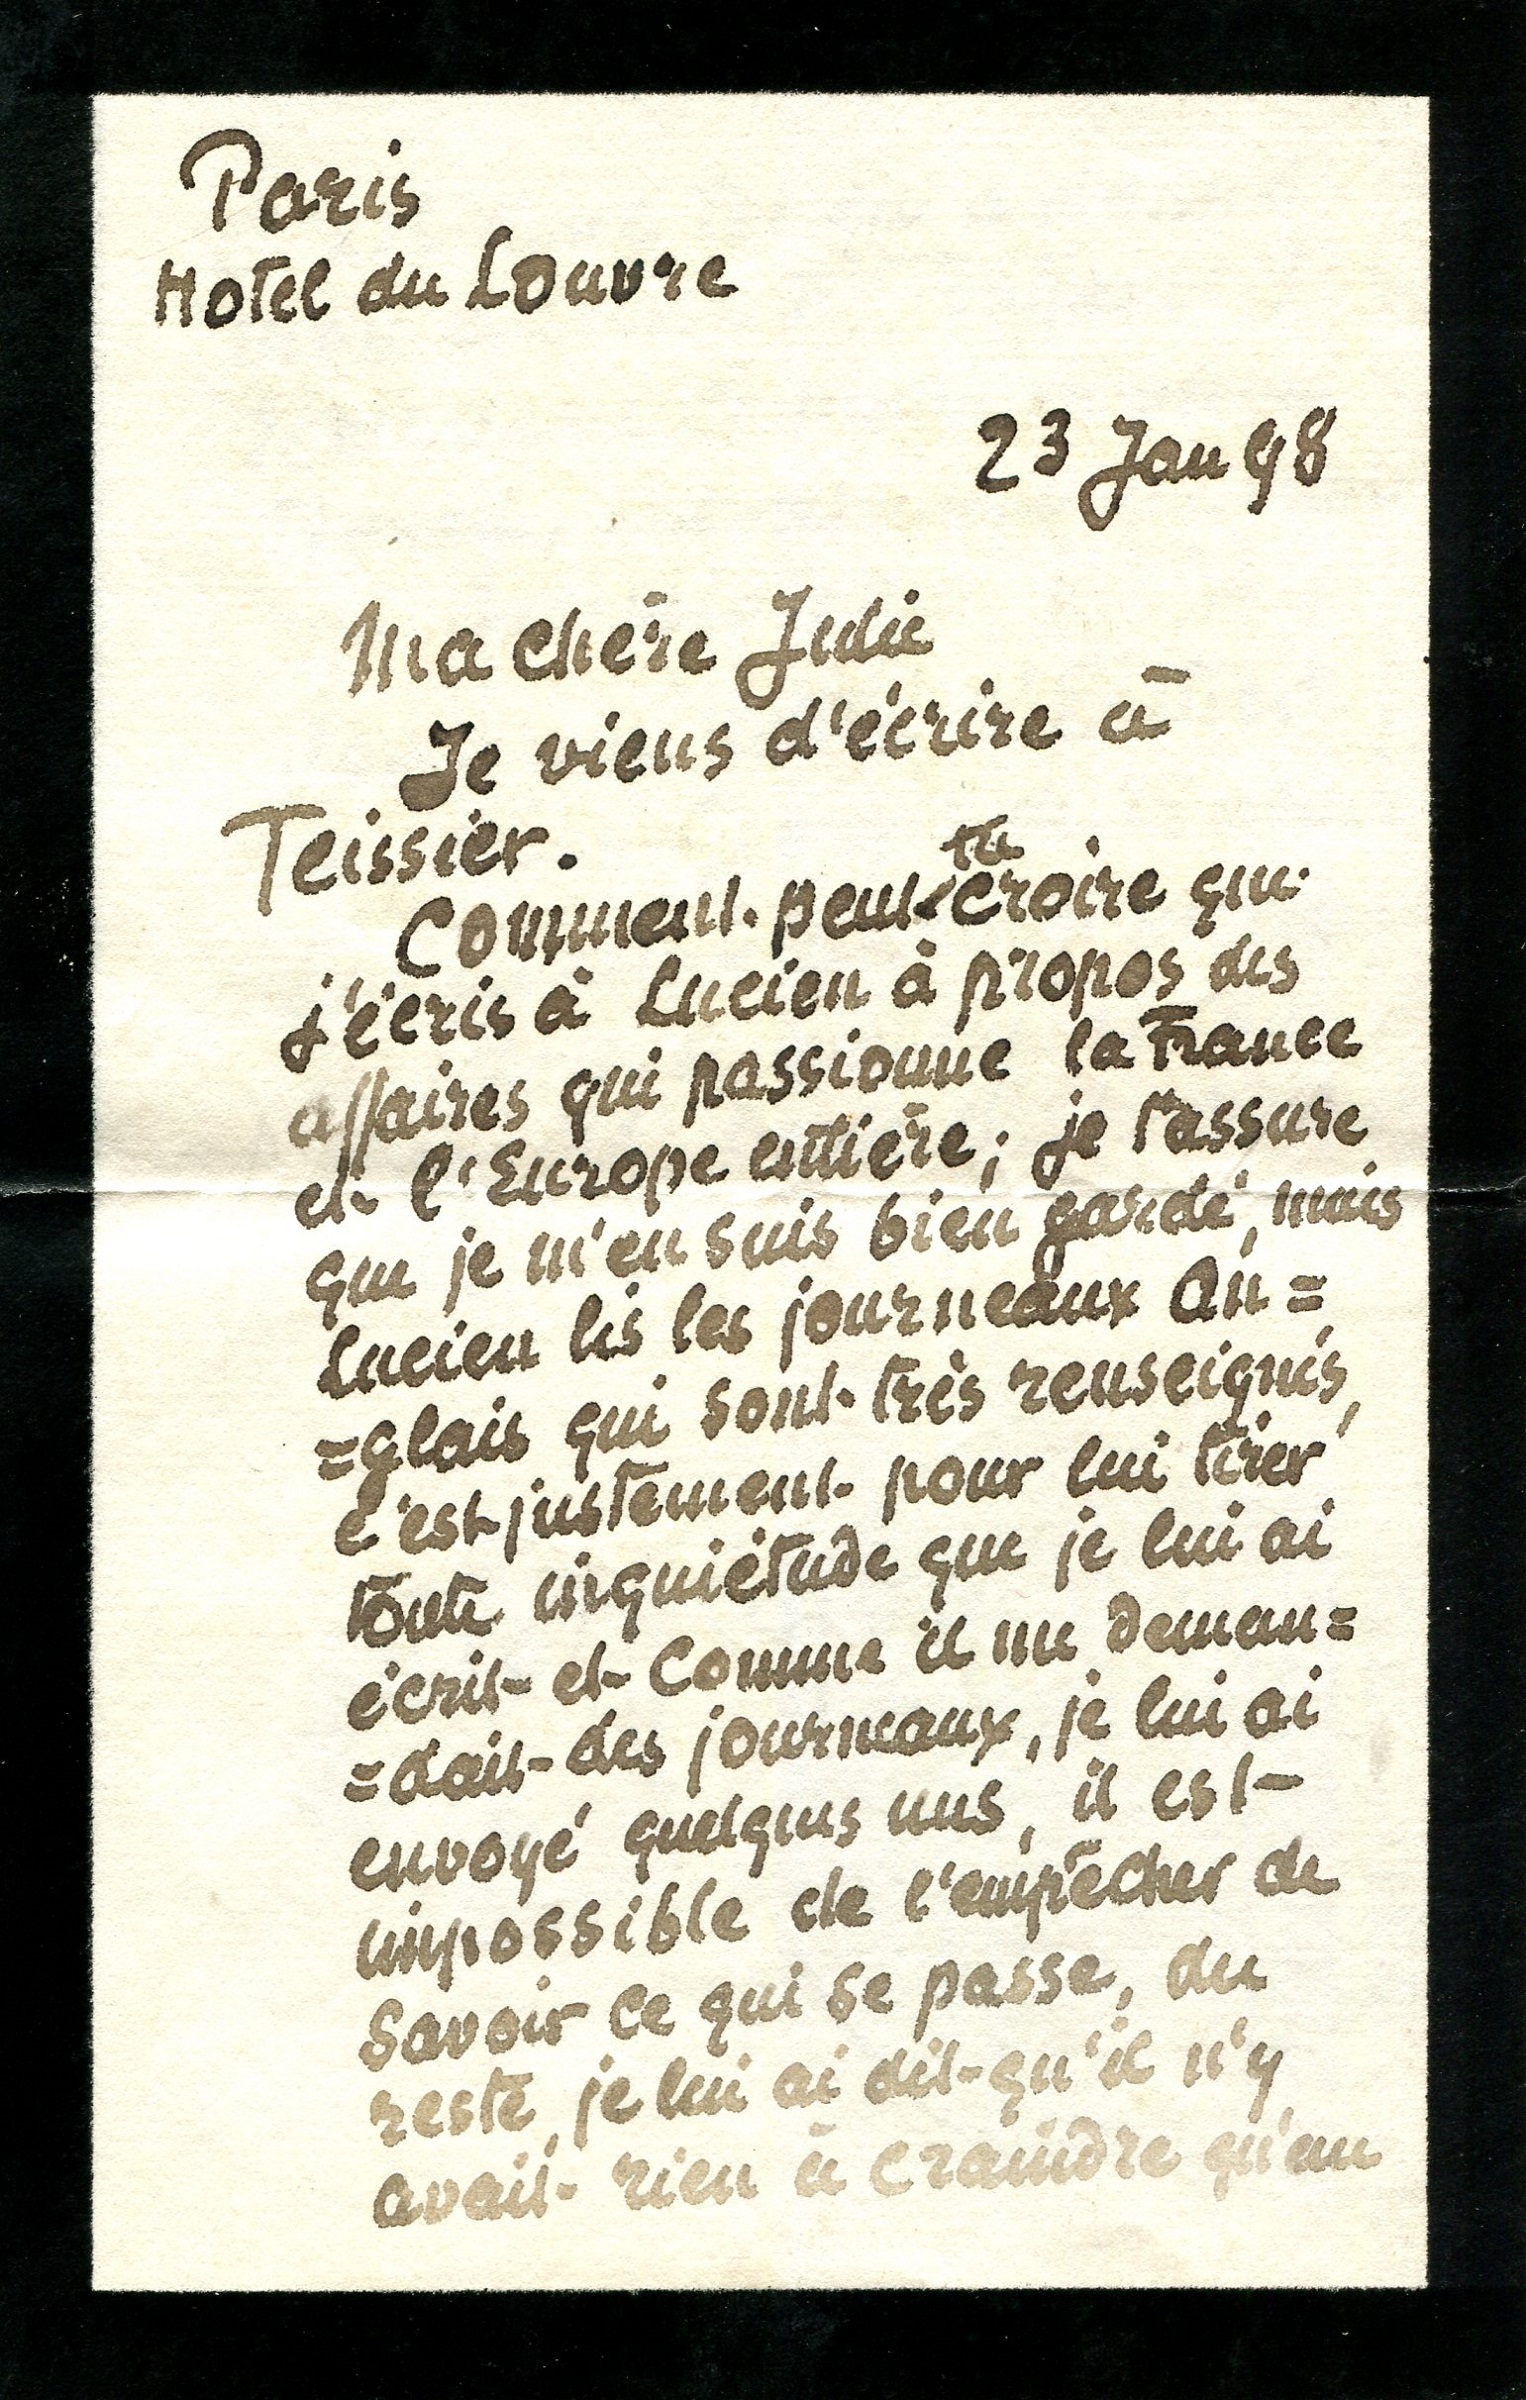 Paris
Hotel du Louvre
23 Jan 98
Ma chère Julie
Je viens d'écrire à
Teissier.
Comment peut tu croire que
j'écris à Lucien à propos des
affaires qui passionne la France
et l'Europe entière; je t'assure
que je m'en suis bien gardé, mais
Lucien lis les journeaux An=
=glais qui sont très renseignés,
c'est justement pour lui tirer
toute inquiétude que je lui ai
écrit et comme il me deman=
=dait des journeaux, je lui ai
envoyé quelques uns, il est
impossible de l'empêcher de
savoir ce qui se passe, du
reste, je lui ai dit qu'il n'y
avait rien à craindre qu'en